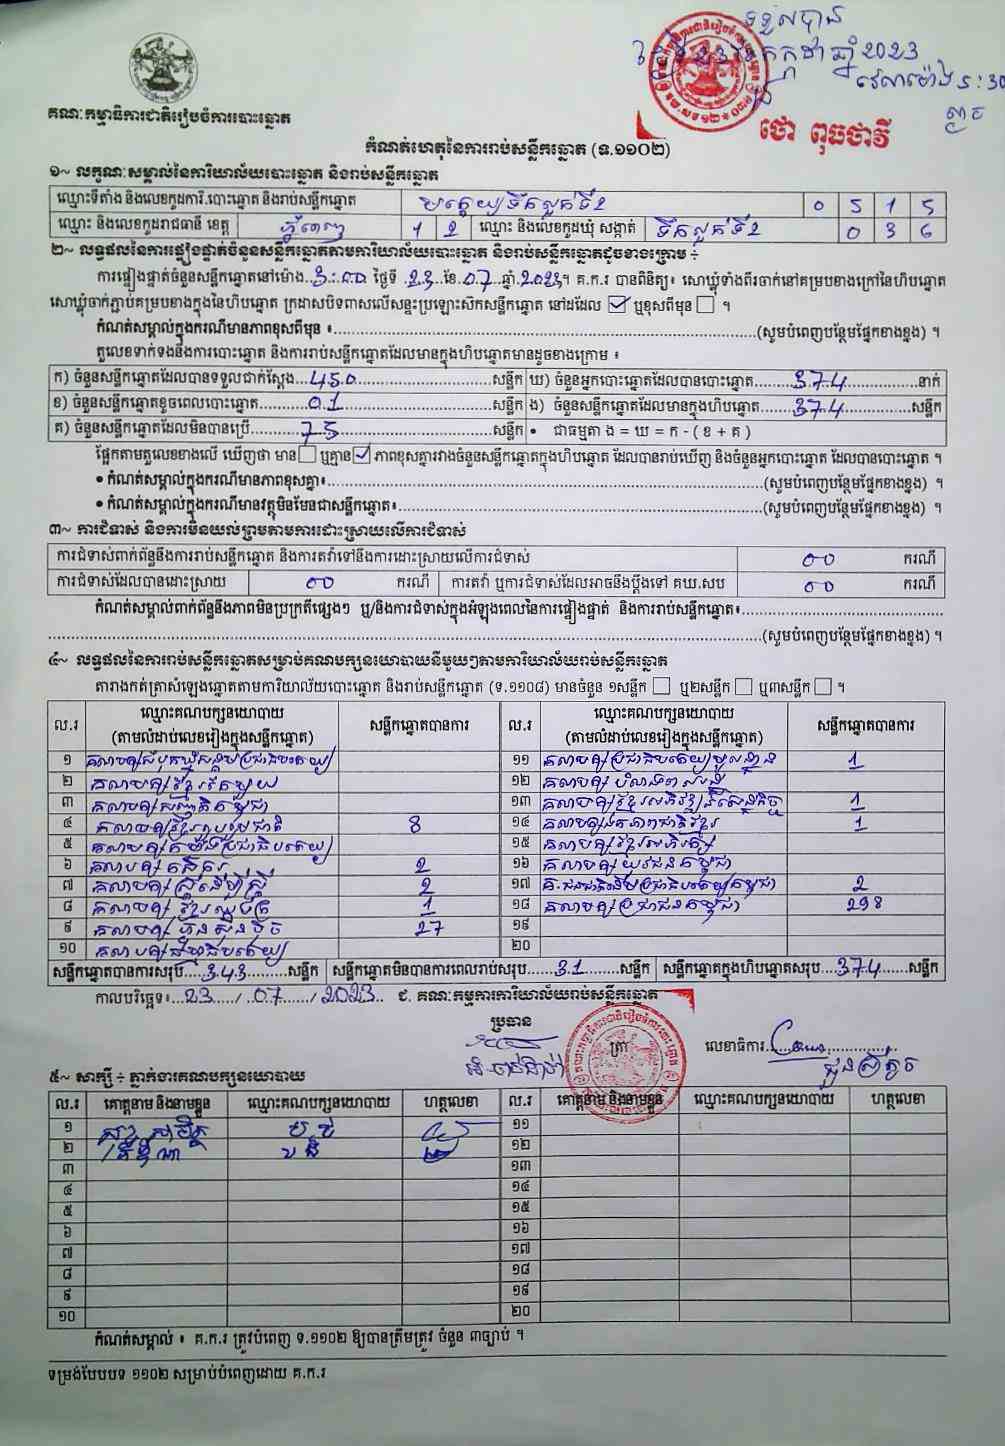 ទទួលបាន
23 កក្កដា ឆ្នាំ 2023
វេលាម៉ោង 5:30
ល្ងាច
ថោ ពុធថាវី
គណៈកម្មាធិការជាតិរៀបចំការបោះឆ្នោត
កំណត់ហេតុនៃការរាប់សន្លឹកឆ្នោត (ទ.១១០២)
១~ លក្ខណៈសម្គាល់នៃការិយាល័យបោះឆ្នោត និងរាប់សន្លឹកឆ្នោត
ឈ្មោះទីតាំង និងលេខកូដការិ.បោះឆ្នោត និងរាប់សន្លឹកឆ្នោត ទឹកល្អក់ទី2 0 5 1 5
ឈ្មោះ និងលេខកូដរាជធានី ខេត្ត ភ្នំពេញ 1 2 ឈ្មោះ និងលេខកូដឃុំ សង្កាត់ ទឹកល្អក់ទី2 0 3 6
២~ លទ្ធផលនៃការផ្ទៀងផ្ទាត់ចំនួនសន្លឹកឆ្នោតតាមការិយាល័យបោះឆ្នោត និងរាប់សន្លឹកឆ្នោតដូចខាងក្រោម ÷
ការផ្ទៀងផ្ទាត់ចំនួនសន្លឹកឆ្នោតនៅម៉ោង 3:00 ថ្ងៃទី 23 ខែ 07 ឆ្នាំ 2023។ គ.ក.រ បានពិនិត្យ៖ សោឃ្លុំទាំងពីរចាក់នៅគម្របខាងក្រៅនៃហិបឆ្នោត
សោឃ្លុំចាក់ភ្ជាប់គម្របខាងក្នុងនៃហិបឆ្នោត ក្រដាសបិទពាសលើសន្ទះប្រឡោះស៊កសន្លឹកឆ្នោត នៅដដែល ☑ ឬខុសពីមុន ☐ ។
កំណត់សម្គាល់ក្នុងករណីមានភាពខុសពីមុន ៖ (សូមបំពេញបន្ថែមផ្នែកខាងខ្នង) ។
តួលេខទាក់ទងនឹងការបោះឆ្នោត និងការរាប់សន្លឹកឆ្នោតដែលមានក្នុងហិបឆ្នោតមានដូចខាងក្រោម ៖
ក) ចំនួនសន្លឹកឆ្នោតដែលបានទទួលជាក់ស្តែង 450 សន្លឹក ឃ) ចំនួនអ្នកបោះឆ្នោតដែលបានបោះឆ្នោត 374 នាក់
ខ) ចំនួនសន្លឹកឆ្នោតខូចពេលបោះឆ្នោត 01 សន្លឹក ង) ចំនួនសន្លឹកឆ្នោតដែលមានក្នុងហិបឆ្នោត 374 សន្លឹក
គ) ចំនួនសន្លឹកឆ្នោតដែលមិនបានប្រើ 75 សន្លឹក • ជាធម្មតា ង = ឃ = ក - ( ខ + គ )
ផ្អែកតាមតួលេខខាងលើ ឃើញថា មាន ☐ ឬគ្មាន ☑ ភាពខុសគ្នារវាងចំនួនសន្លឹកឆ្នោតក្នុងហិបឆ្នោត ដែលបានរាប់ឃើញ និងចំនួនអ្នកបោះឆ្នោត ដែលបានបោះឆ្នោត ។
• កំណត់សម្គាល់ក្នុងករណីមានភាពខុសគ្នា៖ (សូមបំពេញបន្ថែមផ្នែកខាងខ្នង) ។
• កំណត់សម្គាល់ក្នុងករណីមានវត្ថុមិនមែនជាសន្លឹកឆ្នោត៖ (សូមបំពេញបន្ថែមផ្នែកខាងខ្នង) ។
៣~ ការជំទាស់ និងការមិនយល់ព្រមតាមការដោះស្រាយលើការជំទាស់
ការជំទាស់ពាក់ព័ន្ធនឹងការរាប់សន្លឹកឆ្នោត និងការតវ៉ាទៅនឹងការដោះស្រាយលើការជំទាស់ 00 ករណី
ការជំទាស់ដែលបានដោះស្រាយ 00 ករណី ការតវ៉ា ឬការជំទាស់ដែលអាចនឹងប្តឹងទៅ គឃ.សប 00 ករណី
កំណត់សម្គាល់ពាក់ព័ន្ធនឹងភាពមិនប្រក្រតីផ្សេងៗ ឬ/និងការជំទាស់ក្នុងអំឡុងពេលនៃការផ្ទៀងផ្ទាត់ និងការរាប់សន្លឹកឆ្នោត៖
(សូមបំពេញបន្ថែមផ្នែកខាងខ្នង) ។
៤~ លទ្ធផលនៃការរាប់សន្លឹកឆ្នោតសម្រាប់គណបក្សនយោបាយនីមួយៗតាមការិយាល័យរាប់សន្លឹកឆ្នោត
តារាងកត់ត្រាសំឡេងឆ្នោតតាមការិយាល័យបោះឆ្នោត និងរាប់សន្លឹកឆ្នោត (ទ.១១០៨) មានចំនួន ១សន្លឹក ☐ ឬ២សន្លឹក ☐ ឬ៣សន្លឹក ☐ ។
ល.រ ឈ្មោះគណបក្សនយោបាយ (តាមលំដាប់លេខរៀងក្នុងសន្លឹកឆ្នោត) សន្លឹកឆ្នោតបានការ ល.រ ឈ្មោះគណបក្សនយោបាយ (តាមលំដាប់លេខរៀងក្នុងសន្លឹកឆ្នោត) សន្លឹកឆ្នោតបានការ
១ គណបក្សសំបុកឃ្មុំសង្គមប្រជាធិបតេយ្យ ១១ គណបក្សប្រជាធិបតេយ្យមូលដ្ឋាន 1
២ គណបក្សខ្មែរតែមួយ ១២
៣ គណបក្សសញ្ជាតិកម្ពុជា ១៣ គណបក្សខ្មែរអភិវឌ្ឍន៍សេដ្ឋកិច្ច 1
៤ គណបក្សខ្មែររួបរួមជាតិ 8 ១៤ គណបក្សឯកភាពជាតិខ្មែរ 1
៥ គណបក្សកម្លាំងប្រជាធិបតេយ្យ ១៥ គណបក្សខ្មែរអភិរក្ស
៦ គណបក្សកសិករ 2 ១៦ គណបក្សយុវជនកម្ពុជា
៧ គណបក្សស្ត្រីដើម្បីស្ត្រី 2 ១៧ គ.ជនជាតិដើមប្រជាធិបតេយ្យកម្ពុជា 2
៨ គណបក្សខ្មែរឈប់ក្រ 1 ១៨ គណបក្សប្រជាជនកម្ពុជា 298
៩ គណបក្សហ្វ៊ុនស៊ិនប៉ិច 27 ១៩
១០ គណបក្សធម្មាធិបតេយ្យ ២០
សន្លឹកឆ្នោតបានការសរុប 343 សន្លឹក សន្លឹកឆ្នោតមិនបានការពេលរាប់សរុប 31 សន្លឹក សន្លឹកឆ្នោតក្នុងហិបឆ្នោតសរុប 374 សន្លឹក
កាលបរិច្ឆេទ៖ 23 / 07 / 2023 ជ. គណៈកម្មការការិយាល័យរាប់សន្លឹកឆ្នោត
ប្រធាន ត្រា លេខាធិការ
៥~ សាក្សី ÷ ភ្នាក់ងារគណបក្សនយោបាយ
ល.រ គោត្តនាម និងនាមខ្លួន ឈ្មោះគណបក្សនយោបាយ ហត្ថលេខា ល.រ គោត្តនាម និងនាមខ្លួន ឈ្មោះគណបក្សនយោបាយ ហត្ថលេខា
១ ១១
២ ១២
៣ ១៣
៤ ១៤
៥ ១៥
៦ ១៦
៧ ១៧
៨ ១៨
៩ ១៩
១០ ២០
កំណត់សម្គាល់ ៖ គ.ក.រ ត្រូវបំពេញ ទ.១១០២ ឱ្យបានត្រឹមត្រូវ ចំនួន ៣ច្បាប់ ។
ទម្រង់បែបបទ ១១០២ សម្រាប់បំពេញដោយ គ.ក.រ